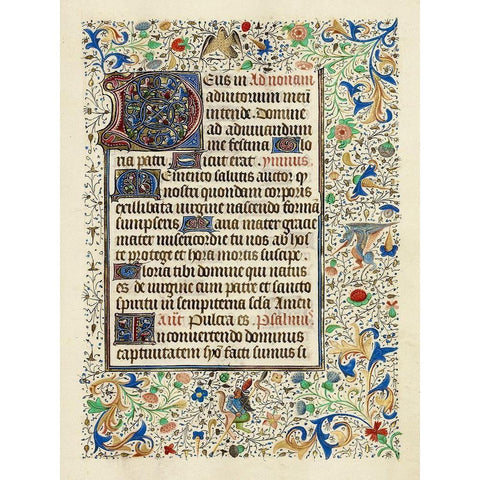 Deus in Ad nonam
adiutorium meū
intende. Domine
ad adiuuandum
me festina Glo
ria patri Sicut erat. ymnus
Memento salutis auctor q
nostri quondam corporis
ex illibata uirgine nascendo formā
sumpseris Maria mater gracie
mater misericordie tu nos ab hoste
protege et hora mortis suscipe
Gloria tibi domine qui natus
es de uirgine cum patre et sancto
spiritu in sempiterna secla Amen
Añ Pulcra es Psalmus
In conuertendo dominus
captiuitatem syō facti sumus si